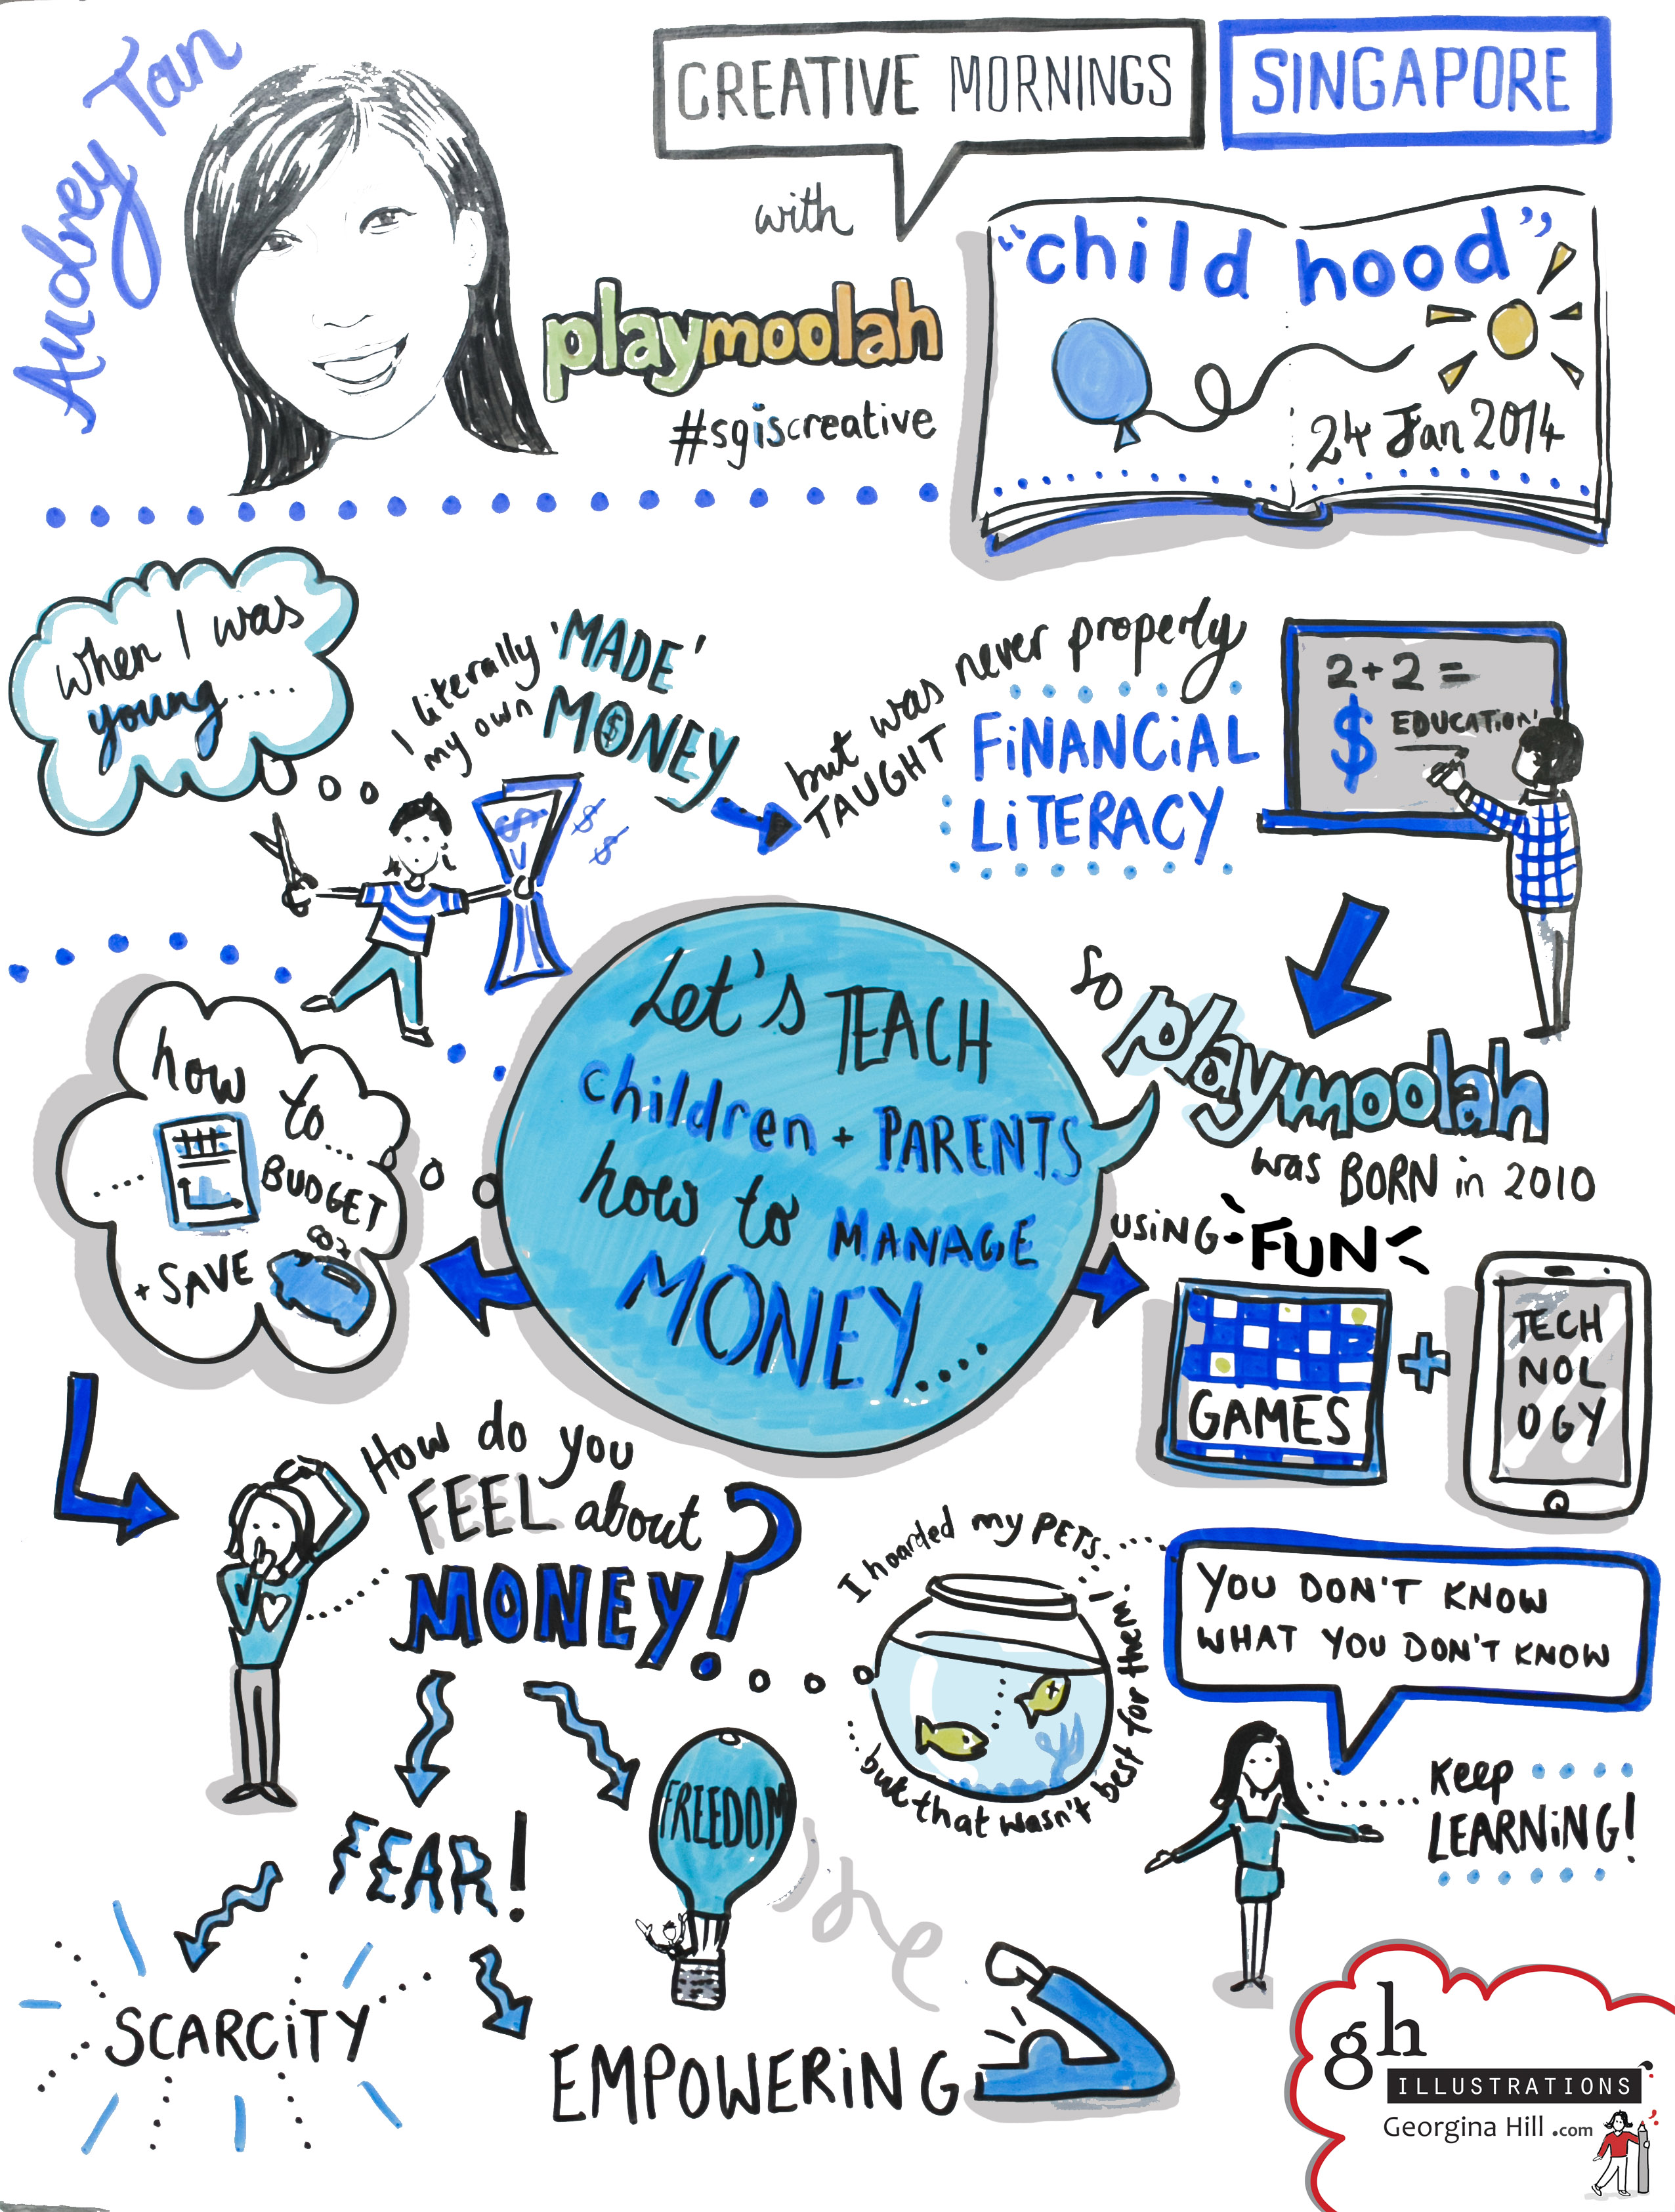 Audrey Tan
CREATIVE MORNINGS
SINGAPORE
with
playmoolah
#sgiscreative
"child hood"
24 Jan 2014
when I was
young.....
I literally 'MADE'
my own MONEY
but was never properly
TAUGHT
FiNANCiAL
LiTERACY
2+2=
$ EDUCATION
$
$
$
so
playmoolah
was BORN in 2010
USiNG FUN
GAMES
+
TECH
NOL
OGY
Let's TEACH
children + PARENTS
how to MANAGE
MONEY....
how to....
.... BUDGET
+ SAVE
How do you
FEEL about
MONEY?
I hoarded my PETS.....
...but that wasn't best for them!
YOU DON'T KNOW
WHAT YOU DON'T KNOW
Keep
LEARNiNG!
FEAR!
FREEDOM
SCARCiTY
EMPOWERiNG
gh
ILLUSTRATIONS
Georgina Hill .com